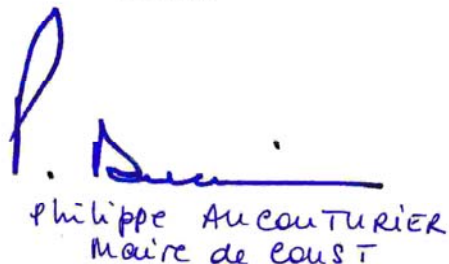 Philippe AUCOUTURIER
Maire de COUST